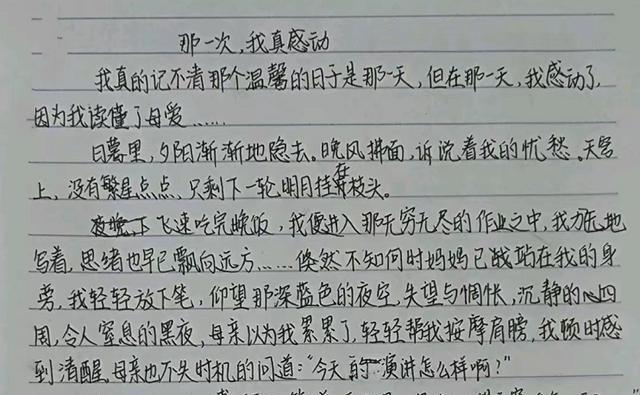 那一次,我真感动
我真的记不清那个温馨的日子是那一天,但在那一天,我感动了,
因为我读懂了母爱……
日暮里,夕阳渐渐地隐去。晚风拂面,诉说着我的忧愁。天空
上,没有繁星点点,只剩下一轮明月挂在枝头。
飞速吃完晚饭,我便进入那无穷无尽的作业之中,我力无地
写着,思绪也早已飘向远方……倏然不知何时妈妈已站在我的身
旁,我轻轻放下笔,仰望那深蓝色的夜空,失望与惆怅,沉静的四
周,令人窒息的黑夜,母亲以为我累累了,轻轻帮我按摩肩膀,我顿时感
到清醒。母亲也不失时机的问道:“今天的演讲怎么样啊?”